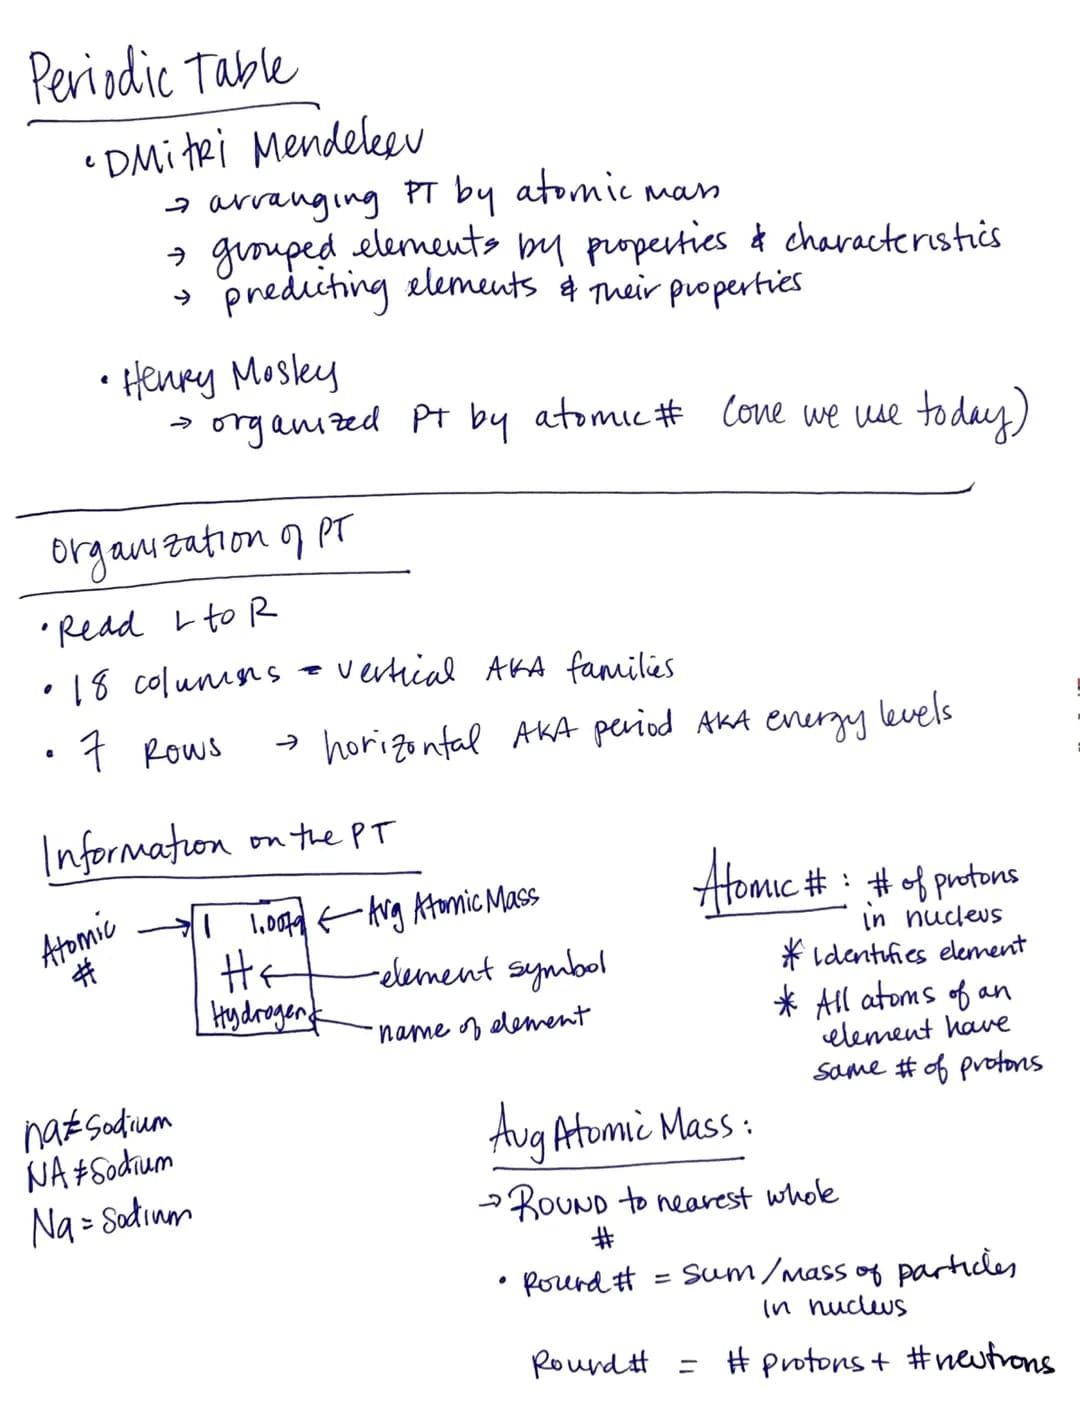 Periodic Table
• DMitRi Mendeleev
→ arranging PT by atomic mass
→ grouped elements by properties & characteristics
→ predicting elements & Their properties
• Henry Mosley
→ organized PT by atomic # (one we use today)
Organization of PT
• Read L to R
• 18 columns = vertical AKA families
• 7 Rows → horizontal AKA period AKA energy levels
Information on the PT
Atomic #
1 1.0079 ← Avg Atomic Mass
H ← element symbol
Hydrogen ← name of element
Atomic # : # of protons
in nucleus
* Identifies element
* All atoms of an
element have
same # of protons
na ≠ Sodium
NA ≠ Sodium
Na = Sodium
Avg Atomic Mass :
→ ROUND to nearest whole
#
• Round # = sum/mass of particles
in nucleus
Round # = # protons + # neutrons